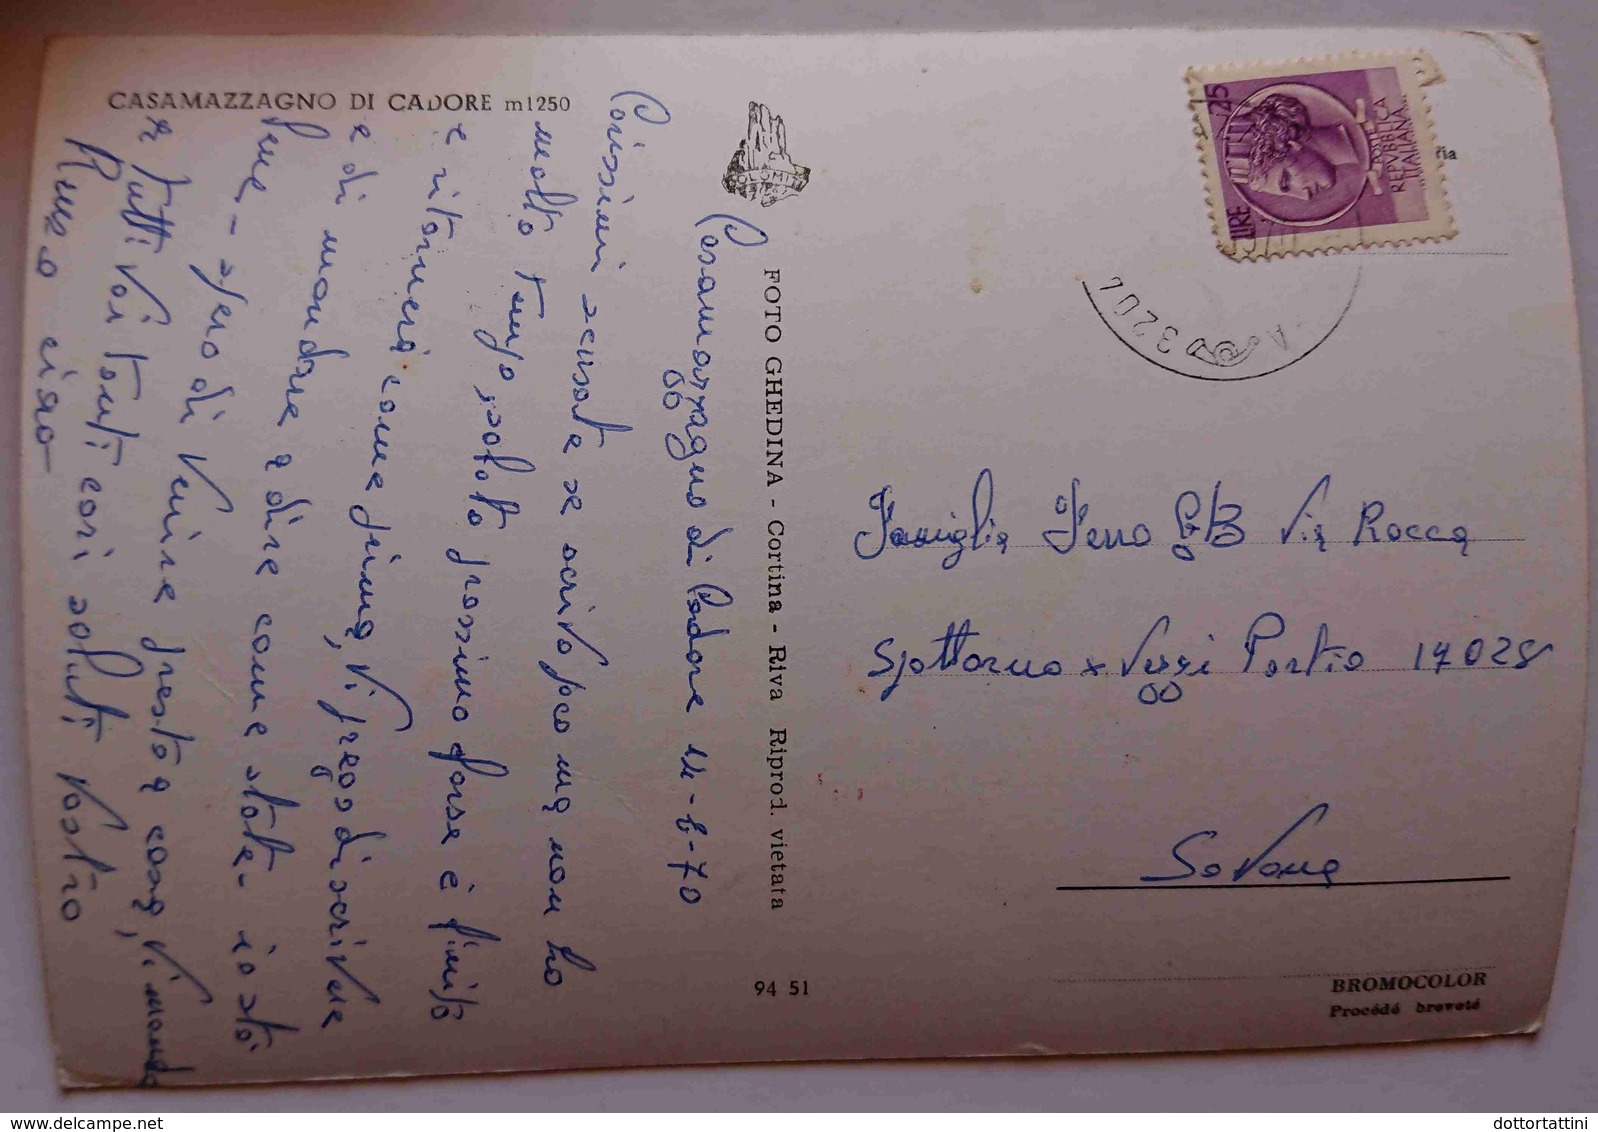 CASAMAZZAGNO DI CADORE m 1250
Casamazzagno di Cadore 11-8-70
Carissimi scusate se scrivo poco ma non ho
molto tempo sabato prossimo forse è finito
e ritornerò come prima, vi prego di scrivere
e di mandare a dire come state - io sto
bene - spero di venire presto a casa, vi mando
a tutti voi tanti cari saluti vostro
Renzo ciao
DOLOMITI
FOTO GHEDINA - Cortina - Riva Riprod. vietata
94 51
LIRE 25
POSTE
REPVBBLICA
ITALIANA
3204
Famiglia Ferro G B Via Rocca
Spottorno x Vezzi Portio 17028
Savona
BROMOCOLOR
Procédé breveté
dottortattini